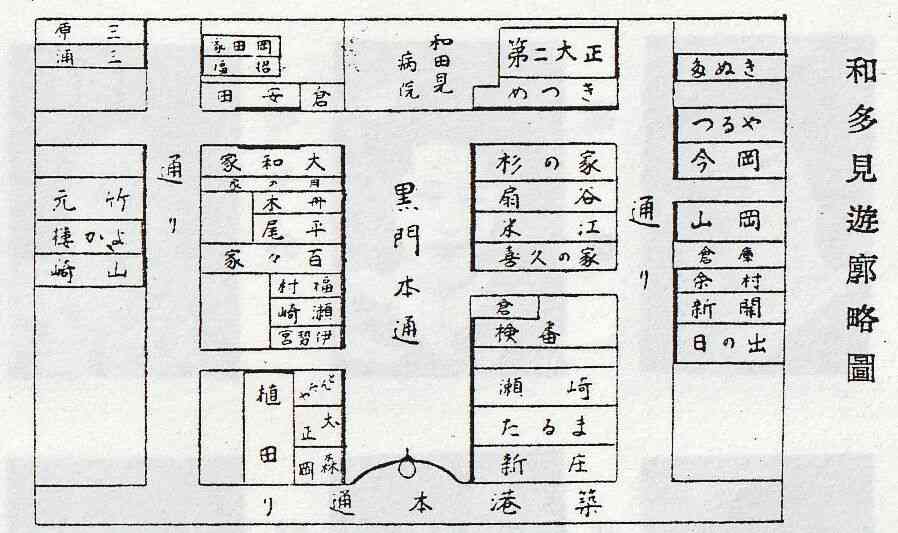 和多見遊廓略圖
多ぬき
つるや
今岡
山岡
倉庫
余村
新開
日の出
通り
第二大正
めつき
杉の家
扇谷
米江
喜久の家
倉
検番
瀬崎
たるま
新庄
和田見
病院
黒門本通
岡田家
倉
安田
大和家
月の家
舟木
平尾
百々家
福村
瀬崎
伊勢宮
大正
森岡
植田
通り
三原
三浦
竹元
よか楼
山崎
築港本通り